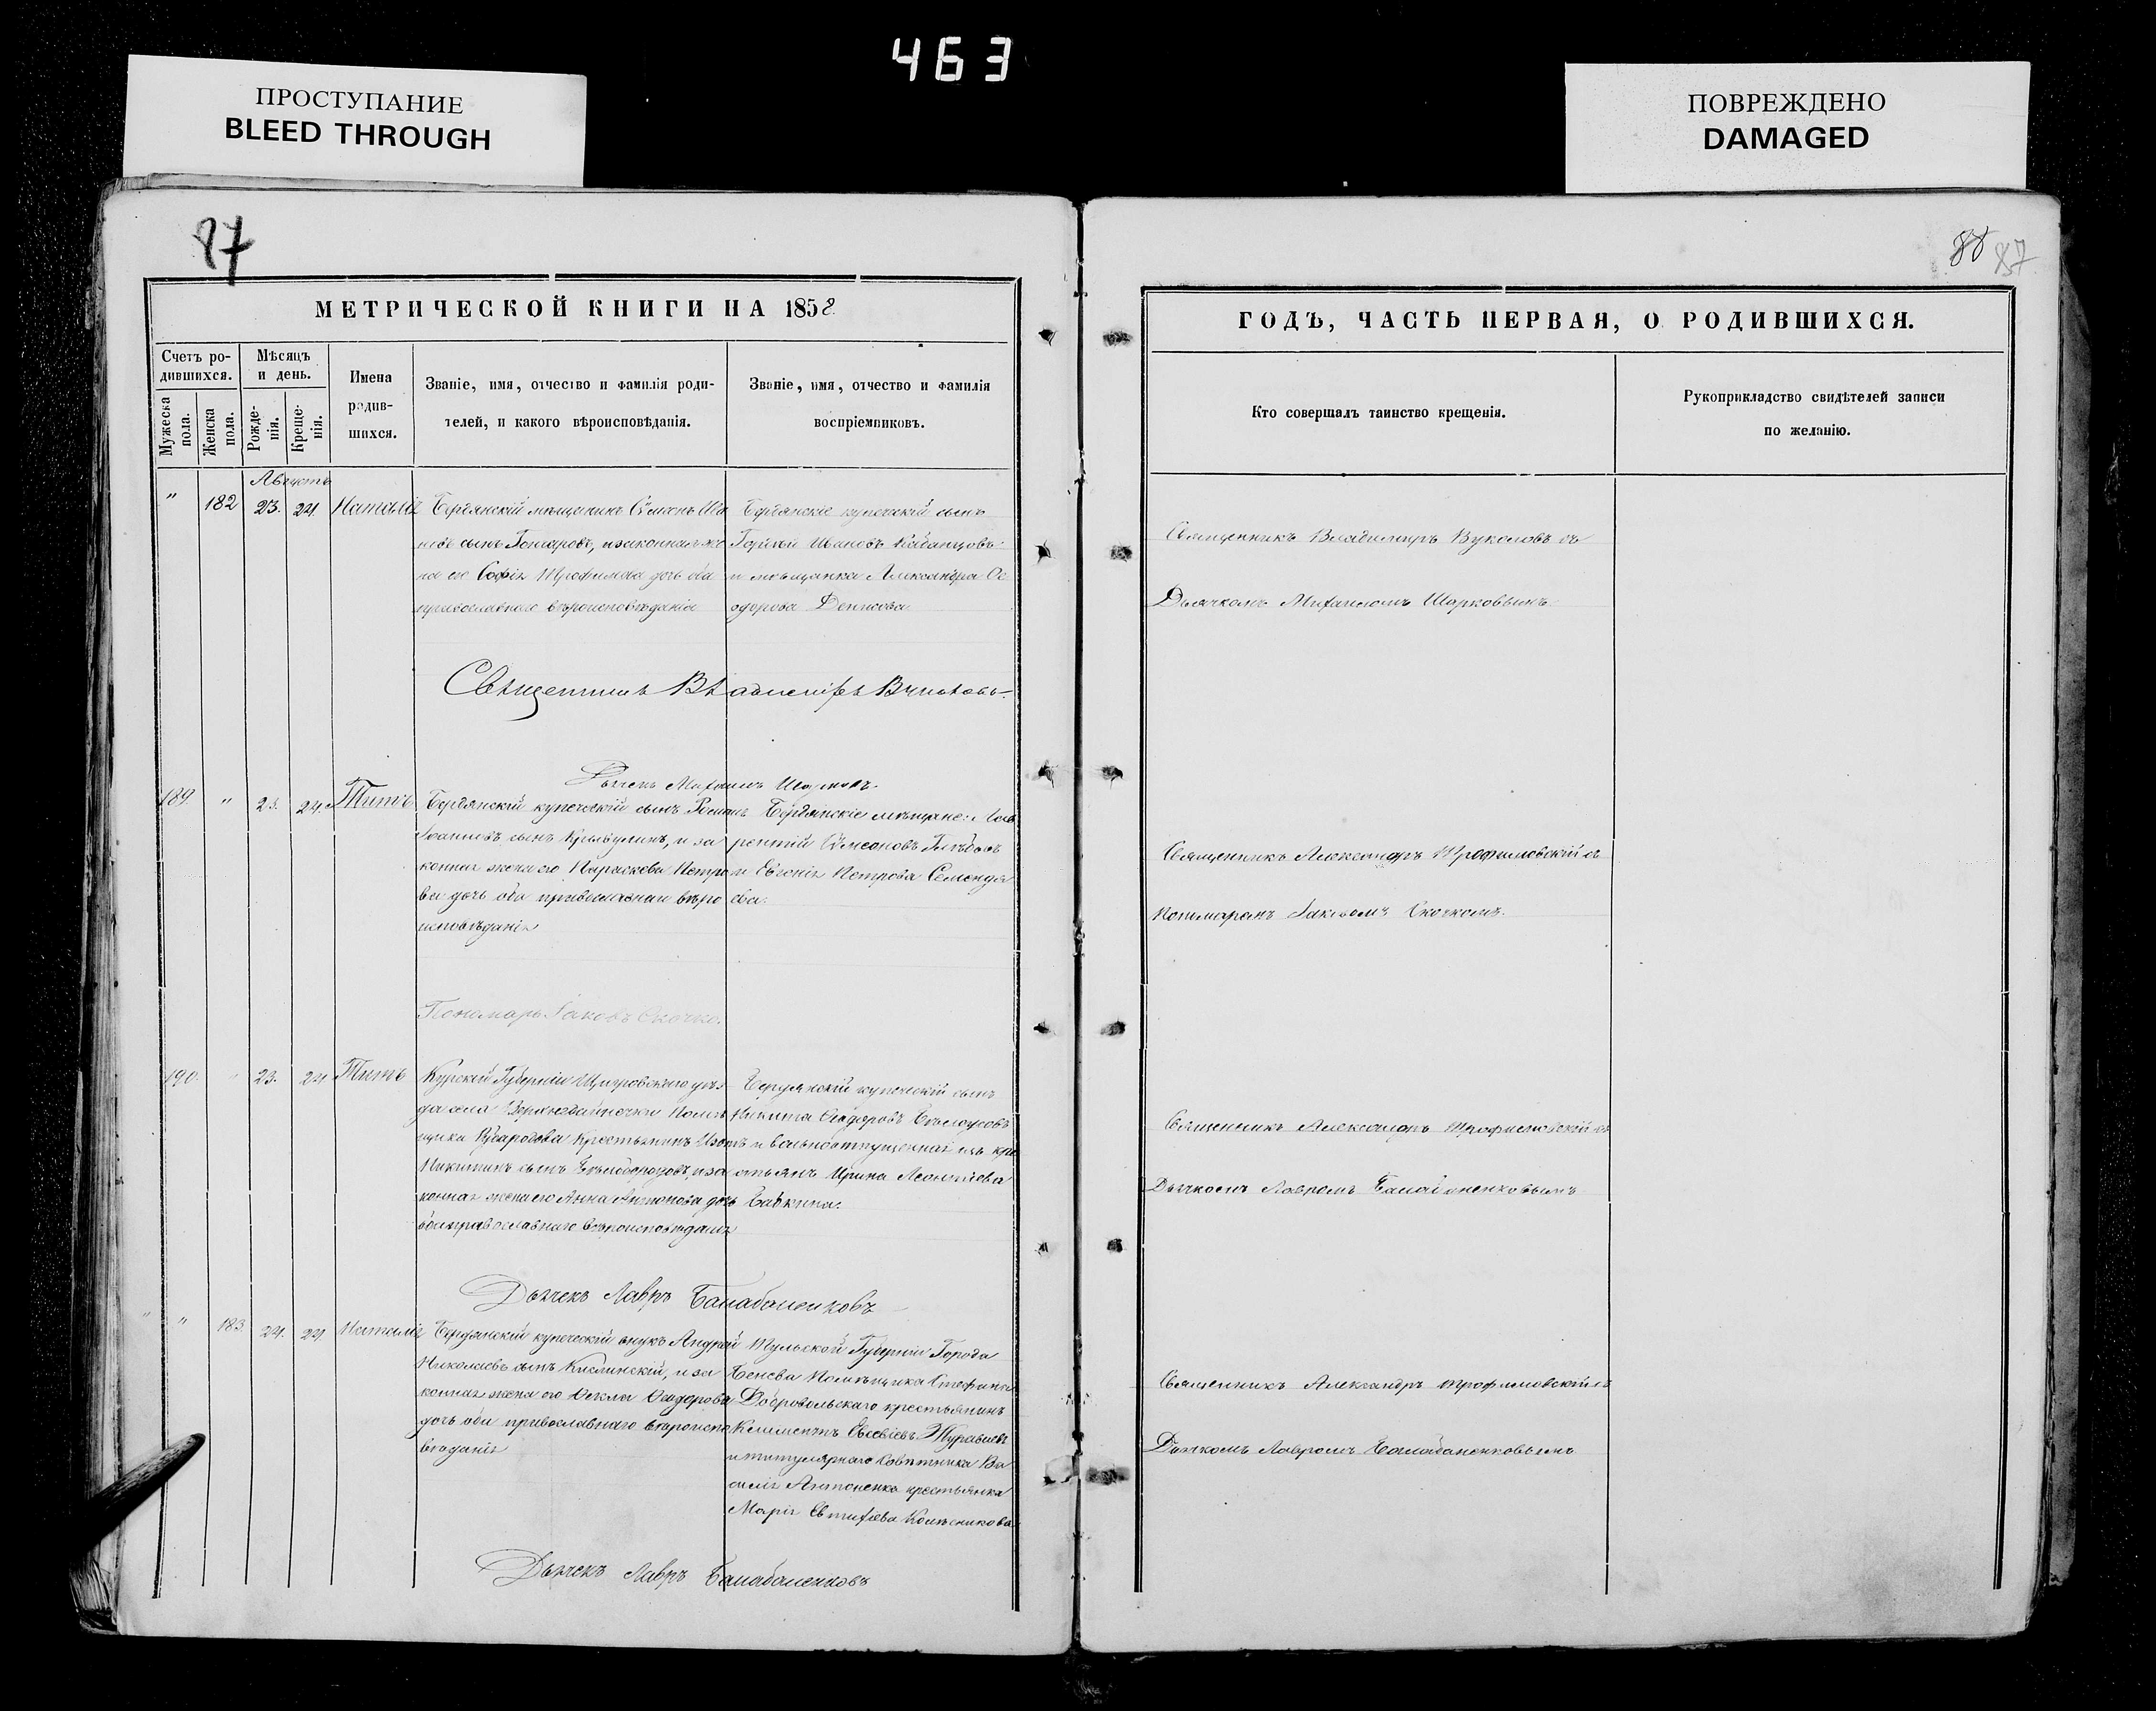 463
ПРОСТУПАНИЕ
BLEED THROUGH
ПОВРЕЖДЕНО
DAMAGED
87
МЕТРИЧЕСКОЙ КНИГИ НА 1858
Счетъ ро-
дившихся.
Мѣсяцъ
и день.
Имена
родив-
шихся.
Званіе, имя, отчество и фамилія роди-
телей, и какого вѣроисповѣданія.
Званіе, имя, отчество и фамилія
воспріемниковъ.
Мужеска
пола.
Женска
пола.
Рожде-
нія.
Креще-
нія.
Августъ
" 182 23. 24 Наталія
Бердянскій мѣщанинъ Симеонъ Ива
новъ сынъ Гончаровъ, и законная же
на его Софія Трофимова дочь оба
православнаго вѣроисповѣданія
Бердянскіе купеческій сынъ
Георгій Ивановъ Кабанцовъ
и мѣщанка Александра Ѳе
одорова Денисова
Священникъ Владимиръ Вуколовъ
Дьячекъ Михаилъ Шарковъ
189 " 23. 24. Титъ
Бердянскій купеческій сынъ Романъ
Іоанновъ сынъ Кривулинъ, и за
конная жена его Параскева Петро
ва дочь оба православнаго вѣро
исповѣданія
Бердянскіе мѣщане: Лав
рентій Симеоновъ Глѣбовъ
и Евгенія Петрова
ева.
Пономарь Іаковъ Скочко.
190. " 23. 24 Титъ
Курской Губерніи Щигровскаго уѣз
да села Помѣ
щика Крестьянинъ
Никитинъ сынъ Бѣлобородовъ, и за
конная жена его Анна Антонова дочь
оба православнаго вѣроисповѣданія
Бердянскій купеческій сынъ
Никита Ѳеодоровъ Бѣлоусовъ
и вольноотпущенная изъ кре
стьянъ Ирина Леонтіева
Бабкина.
Дьячекъ Лавръ Балабаненковъ
" 183 24. 24 Наталія
Бердянскій купеческій внукъ Андрей
Николаевъ сынъ Кислинскій, и за
конная жена его Ѳекла Ѳеодорова
дочь оба православнаго вѣроиспо
вѣданія
Тульской Губерніи Города
Венева Помѣщика Стефана
Добровольскаго крестьянинъ
Климентъ Евсевіевъ Журавлевъ
и титулярнаго Совѣтника Ва
силія Антоненко крестьянка
Марія Евтихіева Колесникова
Дьячекъ Лавръ Балабаненковъ
88 87
ГОДЪ, ЧАСТЬ ПЕРВАЯ, О РОДИВШИХСЯ.
Кто совершалъ таинство крещенія.
Рукоприкладство свидѣтелей записи
по желанію.
Священникъ Владимиръ Вуколовъ съ
Дьячкомъ Михаиломъ Шарковымъ
Священникъ Александръ Трофимовскій съ
Пономаремъ Іаковомъ Скочкомъ.
Священникъ Александръ Трофимовскій съ
Дьячкомъ Лавромъ Балабаненковымъ
Священникъ Александръ Трофимовскій съ
Дьячкомъ Лавромъ Балабаненковымъ